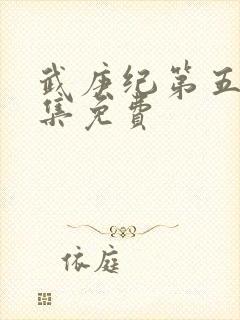 武庚纪第五
集免费
依庭